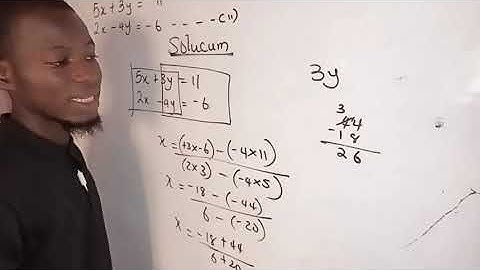 5x + 3y = 11
2x - 4y = -6 - - - - (11)
Solucum
5x + 3y = 11
2x - 4y = -6
x = (+3x-6) - (-4x11)
(2x3) - (-4x5)
x = -18 - (-44)
6 - (-20)
x = -18 + 44
6 + 20
3y
3
44
-18
26